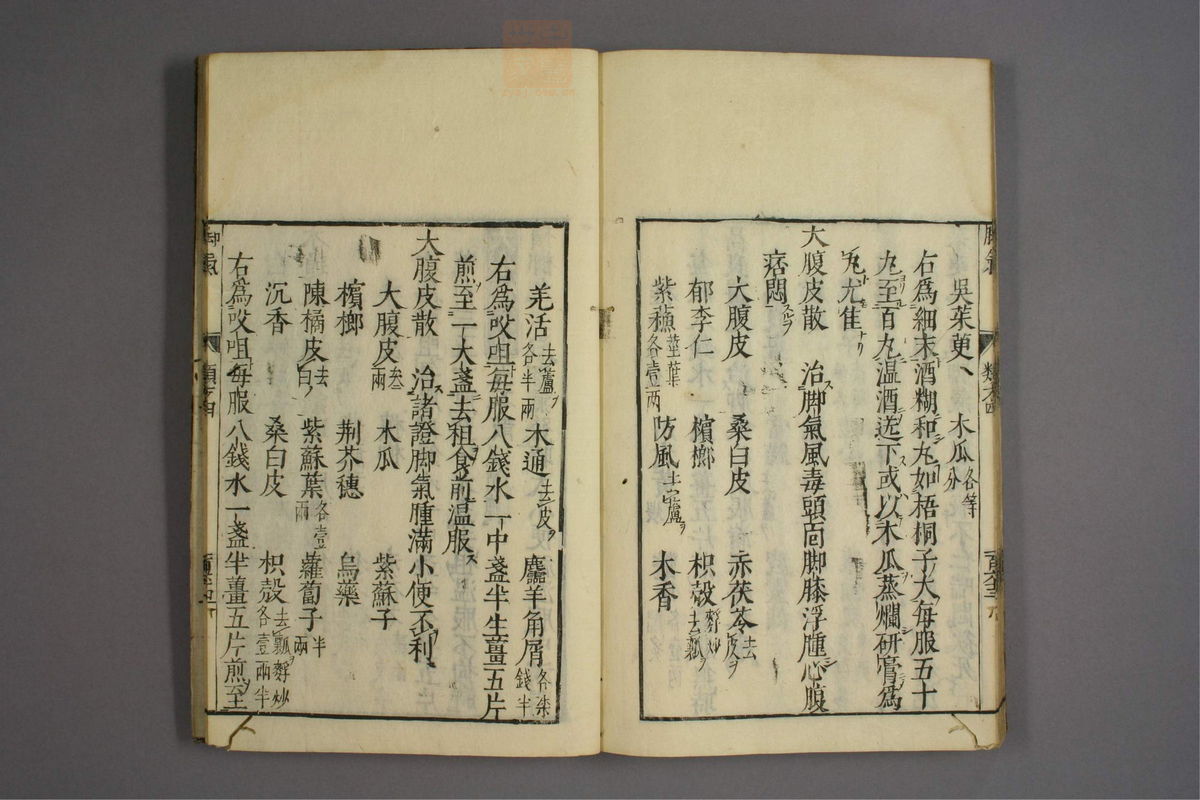 吳茱萸 木瓜各等分
右爲細末酒糊和丸如梧桐子大每服五十
丸至百丸温酒送下或以木瓜蒸爛研膏爲
丸尤佳
大腹皮散 治脚氣風毒頭面脚膝浮腫心腹
痞悶
大腹皮 桑白皮 赤茯苓去皮
郁李仁 檳榔 枳殼去瓤麩炒
紫蘇莖葉各壹兩 防風去蘆 木香
羌活去蘆各半兩 木通去皮 羚羊角屑各柒錢半
右爲㕮咀每服八錢水一中盞半生薑五片
煎至一大盞去粗食前温服
大腹皮散 治諸證脚氣腫滿小便不利
大腹皮叁兩 木瓜 紫蘇子
檳榔 荆芥穗 烏藥
陳橘皮去白 紫蘇葉各壹兩 蘿蔔子半兩
沉香 桑白皮 枳殼去瓤麩炒各壹兩半
右爲㕮咀每服八錢水一盞半薑五片煎至